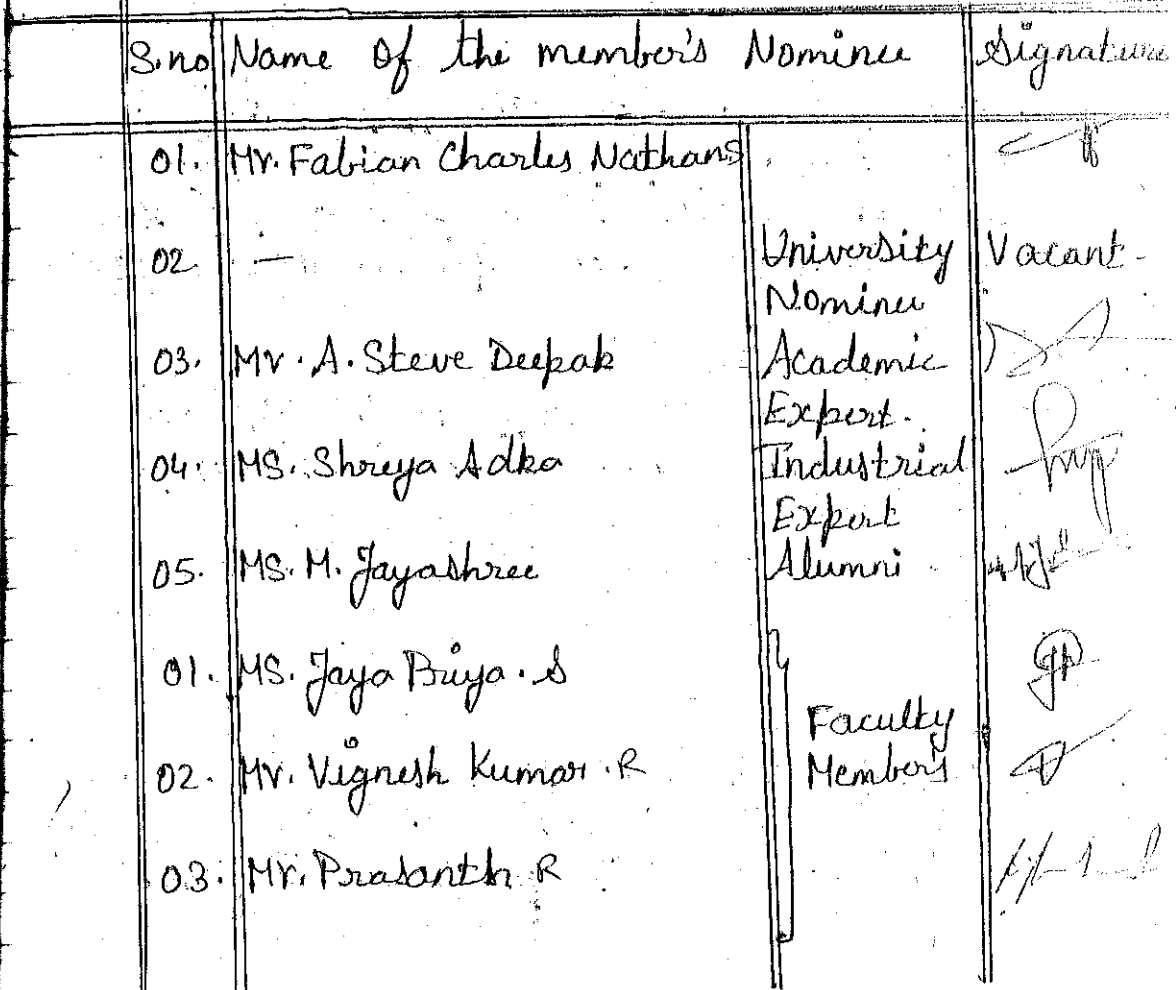 S.no Name of the member's Nominee Signature
01. Mr. Fabian Charles Nathans
02 — University Vacant-
Nominee
03. Mr. A. Steve Deepak Academic
Expert.
04. MS. Shreya Adka Industrial
Expert
05. MS. M. Jayashree Alumni
01. MS. Jaya Priya. S
Faculty
02. Mr. Vignesh Kumar. R Member's
03. Mr. Prasanth R